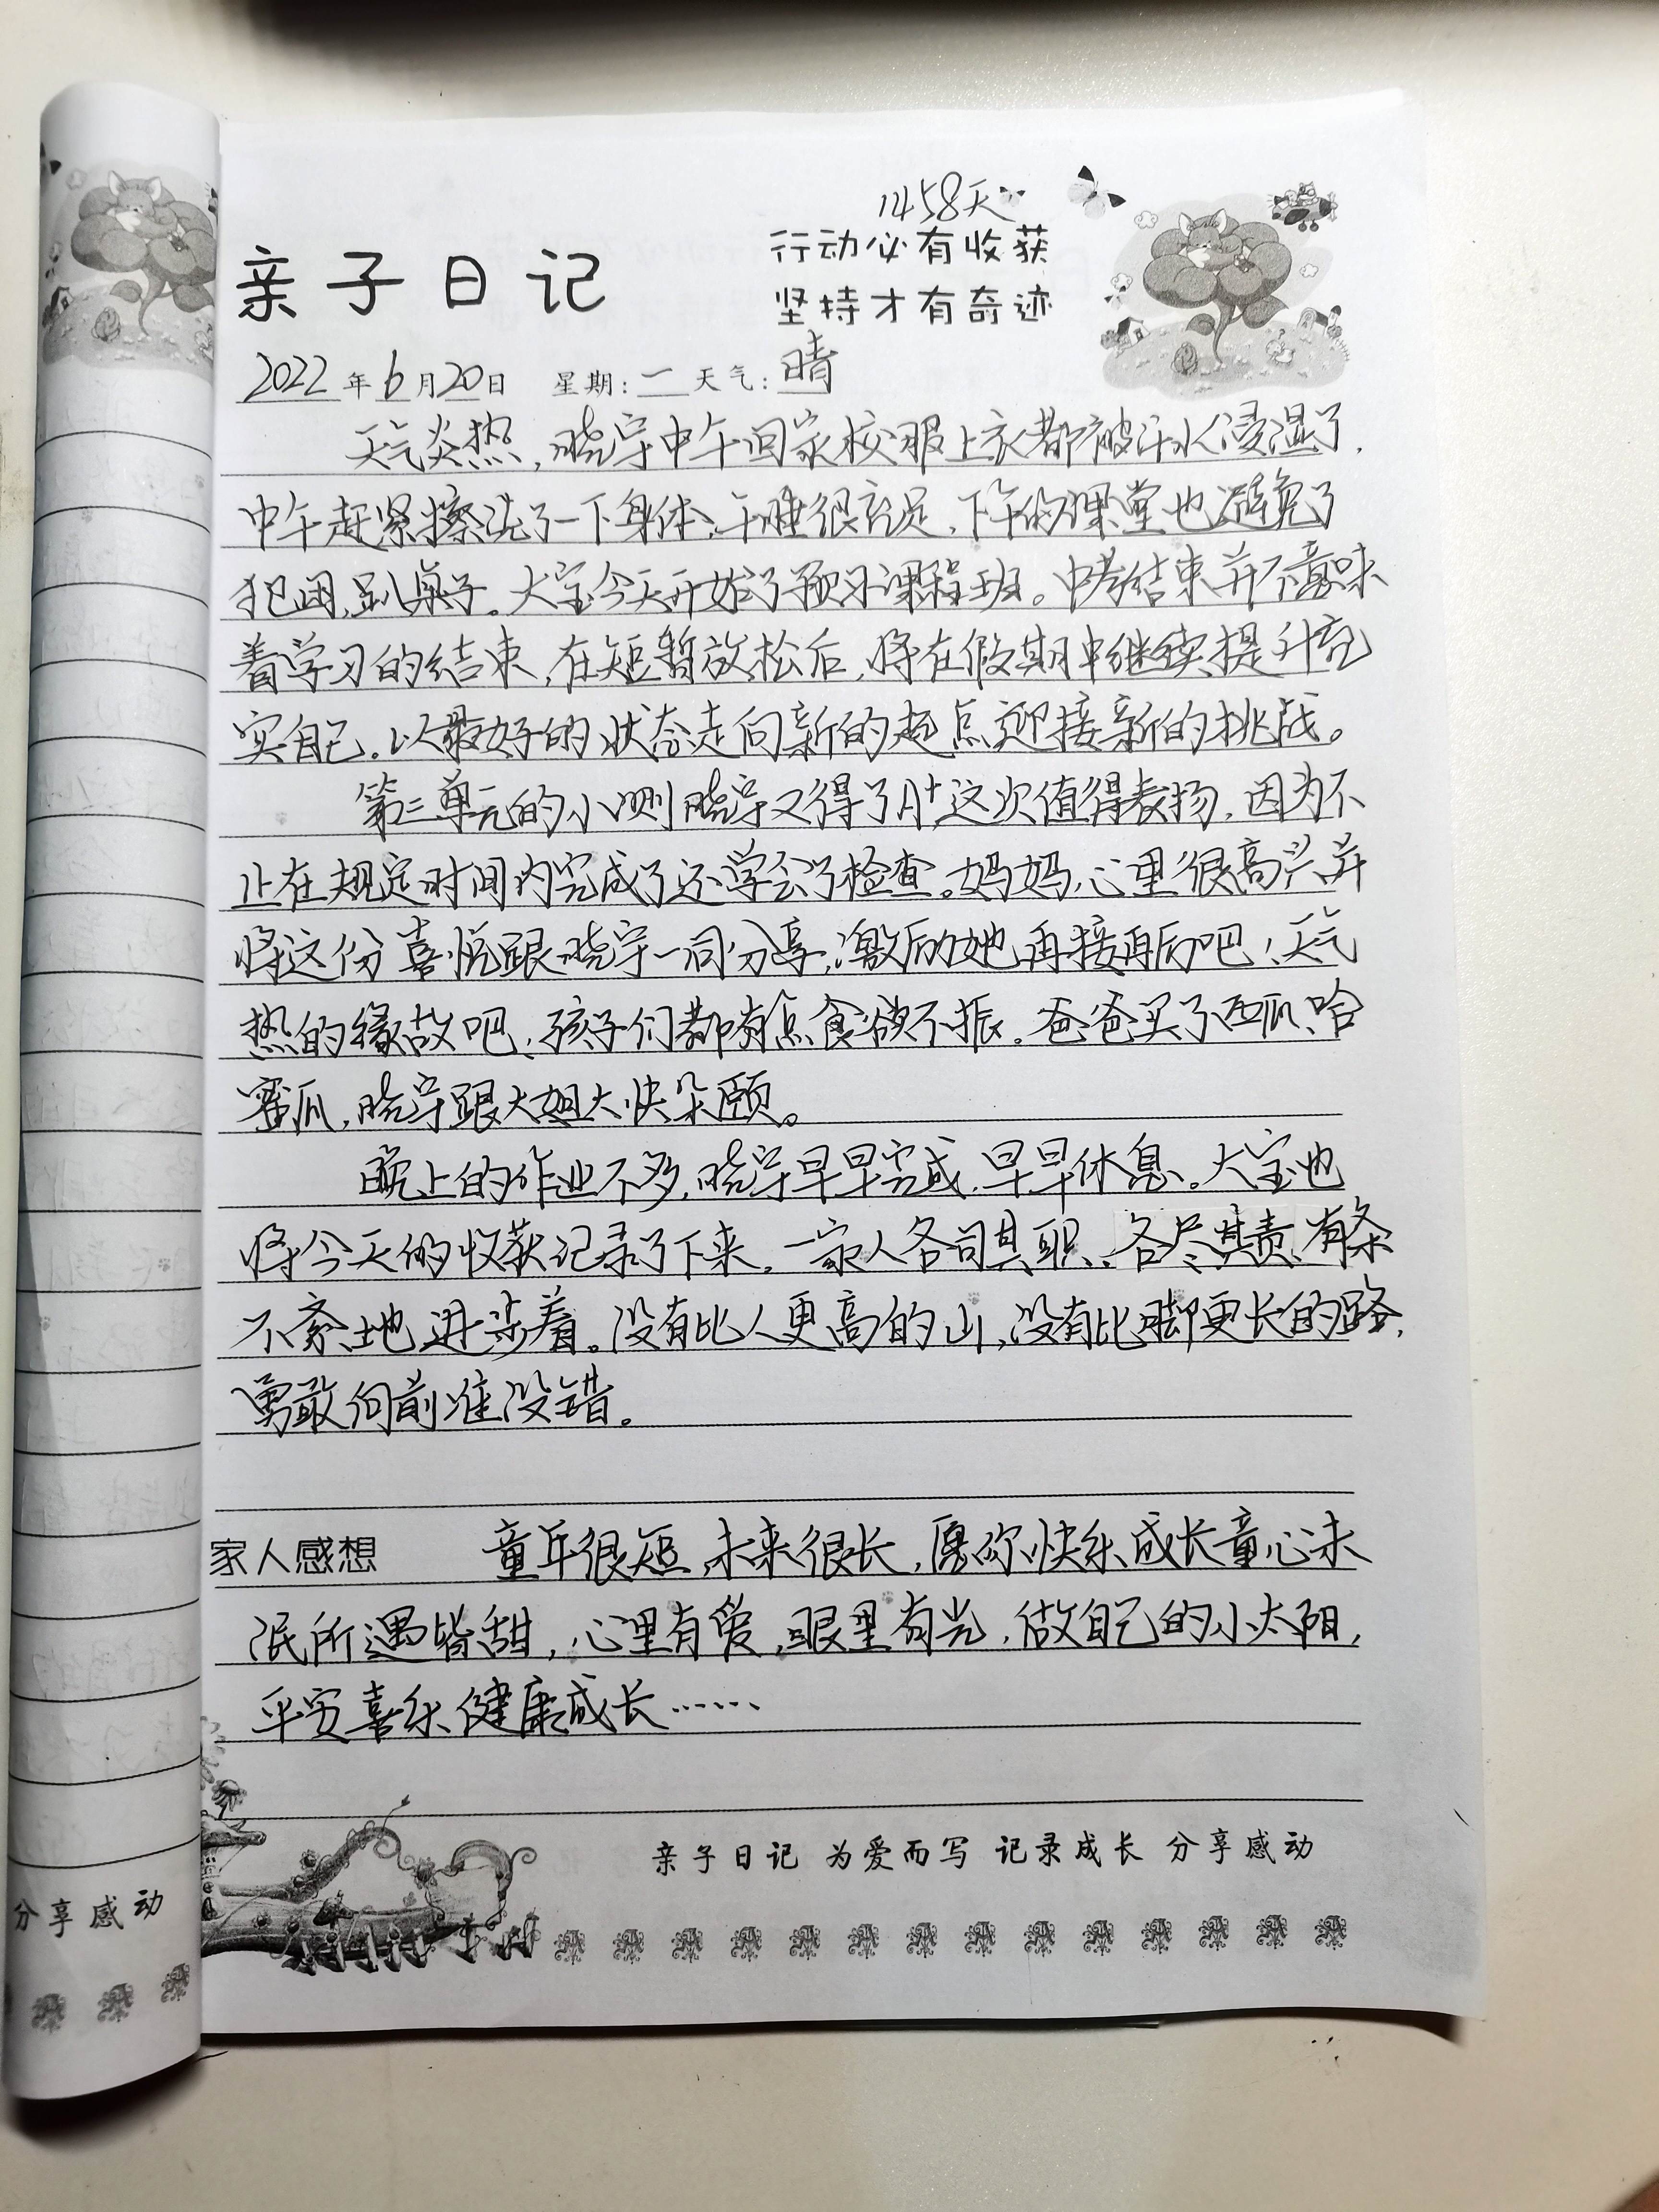 1458天
行动必有收获
坚持才有奇迹
亲子日记
2022年6月20日 星期:一 天气:晴
天气炎热,晓宇中午回家校服上衣都被汗水浸湿了,
中午赶紧擦洗了一下身体,午睡很充足,下午的课堂也避免了
犯困,趴桌子。大宝今天开始了预习课程班。中考结束并不意味
着学习的结束,在短暂放松后,将在假期中继续提升充
实自己。以最好的状态走向新的起点迎接新的挑战。
第三单元的小测晓宇又得了A+,这次值得表扬,因为不
止在规定时间内完成了还学会了检查。妈妈心里很高兴并
将这份喜悦跟晓宇一同分享,激励她再接再厉吧!天气
热的缘故吧,孩子们都有点食欲不振。爸爸买了西瓜、哈
密瓜,晓宇跟大姐大快朵颐。
晚上的作业不多,晓宇早早完成,早早休息。大宝也
将今天的收获记录了下来。一家人各司其职、各尽其责、有条
不紊地进步着。没有比人更高的山,没有比脚更长的路,
勇敢向前准没错。
家人感想 童年很短,未来很长,愿你快乐成长童心未
泯所遇皆甜,心里有爱,眼里有光,做自己的小太阳,
平安喜乐健康成长……
亲子日记 为爱而写 记录成长 分享感动
分享感动